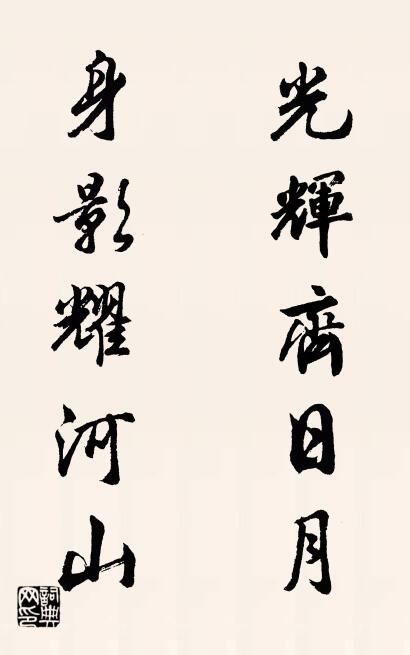 光輝齊日月
身影耀河山
詞典网印